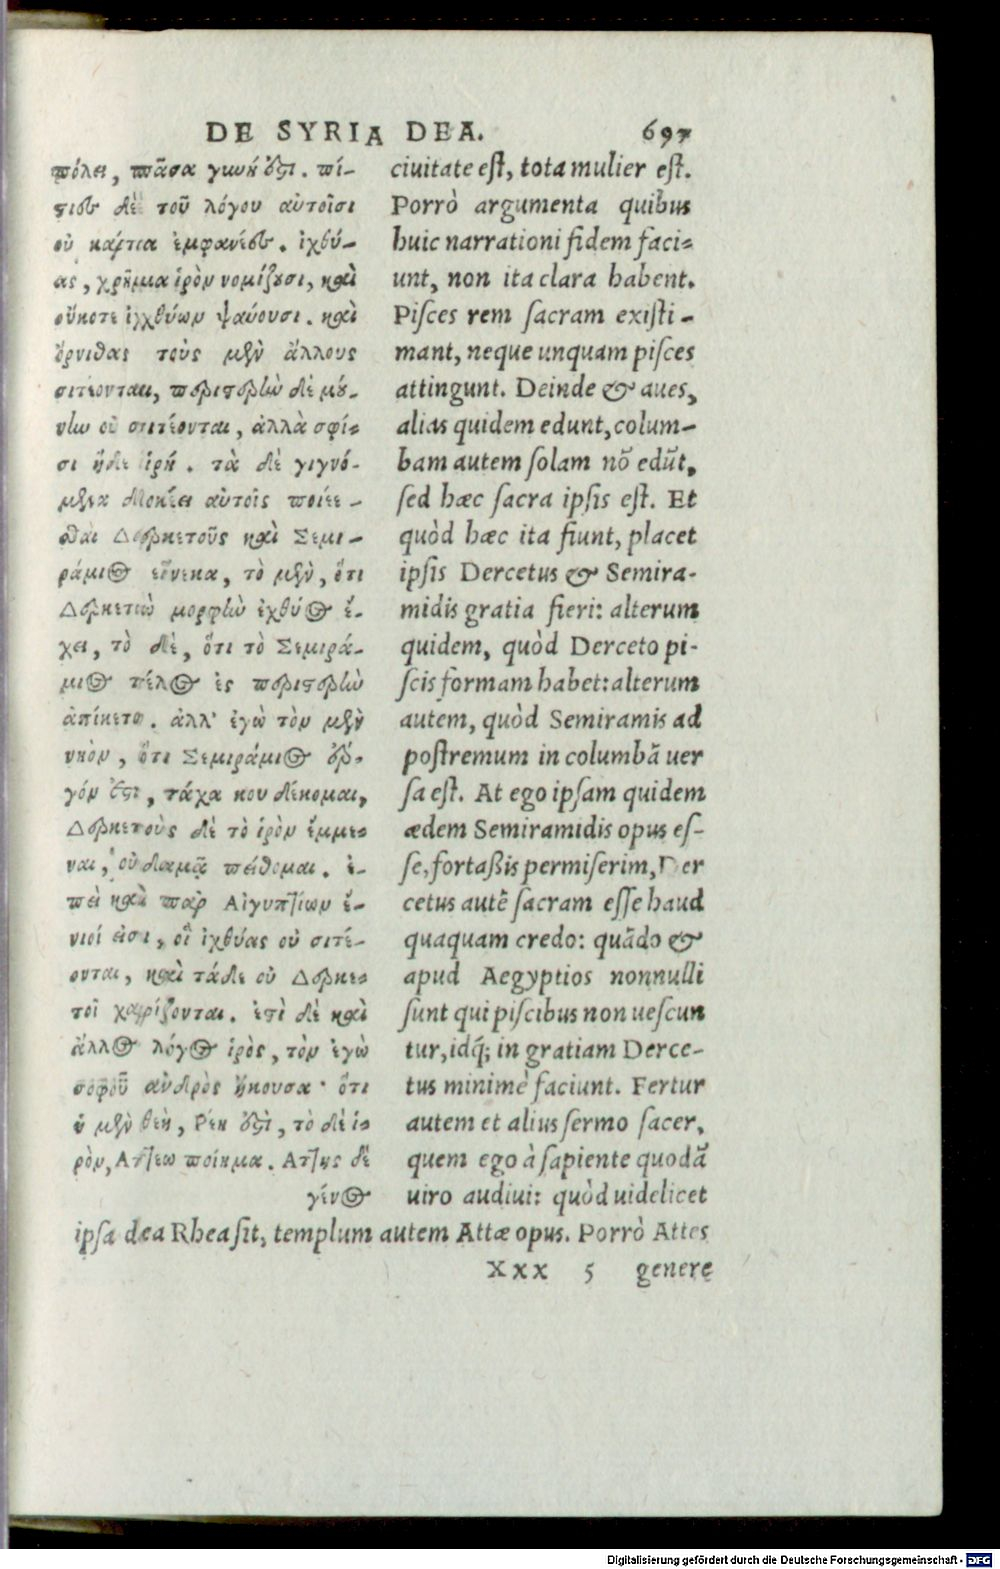 DE SYRIA DEA. 697
πόλει, πᾶσα γυνή ἐστι. πί-
στιες δὲ τοῦ λόγου αὐτοῖσι
οὐ κάρτα ἐμφανέες. ἰχθύ-
ας, χρῆμα ἱρὸν νομίζουσι, καὶ
οὔκοτε ἰχθύων ψαύουσι. καὶ
ὄρνιθας τοὺς μὲν ἄλλους
σιτέονται, περιστερὴν δὲ μού-
νην οὐ σιτέονται, ἀλλὰ σφί-
σι ἥδε ἱρή. τὰ δὲ γιγνό-
μενα δοκέει αὐτοῖς ποιέε-
σθαι Δερκετοῦς καὶ Σεμι-
ράμιος εἵνεκα, τὸ μὲν, ὅτι
Δερκετὼ μορφὴν ἰχθύος ἔ-
χει, τὸ δὲ, ὅτι τὸ Σεμιρά-
μιος τέλος ἐς περιστερὴν
ἀπίκετο. ἀλλ' ἐγὼ τὸν μὲν
νηὸν, ὅτι Σεμιράμιος ἔρ-
γον ἐστι, τάχα κου δέκομαι,
Δερκετοῦς δὲ τὸ ἱρὸν ἔμμε-
ναι, οὐδαμᾶ πείθομαι. ἐ-
πεὶ καὶ παρ Αἰγυπτίων ἔ-
νιοί εἰσι, οἳ ἰχθύας οὐ σιτέ-
ονται, καὶ τάδε οὐ Δερκε-
τοῖ χαρίζονται. ἐστὶ δὲ καὶ
ἄλλος λόγος ἱρὸς, τὸν ἐγὼ
σοφοῦ ἀνδρὸς ἤκουσα· ὅτι
ἡ μὲν θεὴ, Ῥέη ἐστὶ, τὸ δὲ ἱ-
ρὸν, Ἄττεω ποίημα. Ἄττης δὲ
γένος
ciuitate est, tota mulier est.
Porrò argumenta quibus
huic narrationi fidem faci-
unt, non ita clara habent.
Pisces rem sacram existi-
mant, neque unquam pisces
attingunt. Deinde & aues,
alias quidem edunt, colum-
bam autem solam nō edūt,
sed hæc sacra ipsis est. Et
quòd hæc ita fiunt, placet
ipsis Dercetus & Semira-
midis gratia fieri: alterum
quidem, quòd Derceto pi-
scis formam habet: alterum
autem, quòd Semiramis ad
postremum in columbā uer
sa est. At ego ipsam quidem
ædem Semiramidis opus es-
se, fortaßis permiserim, Der
cetus autē sacram esse haud
quaquam credo: quādo &
apud Aegyptios nonnulli
sunt qui piscibus non uescun
tur, idq́; in gratiam Derce-
tus minimè faciunt. Fertur
autem et alius sermo sacer,
quem ego à sapiente quodā
uiro audiui: quòd uidelicet
ipsa dea Rhea sit, templum autem Attæ opus. Porrò Attes
XXX 5 genere
Digitalisierung gefördert durch die Deutsche Forschungsgemeinschaft - DFG